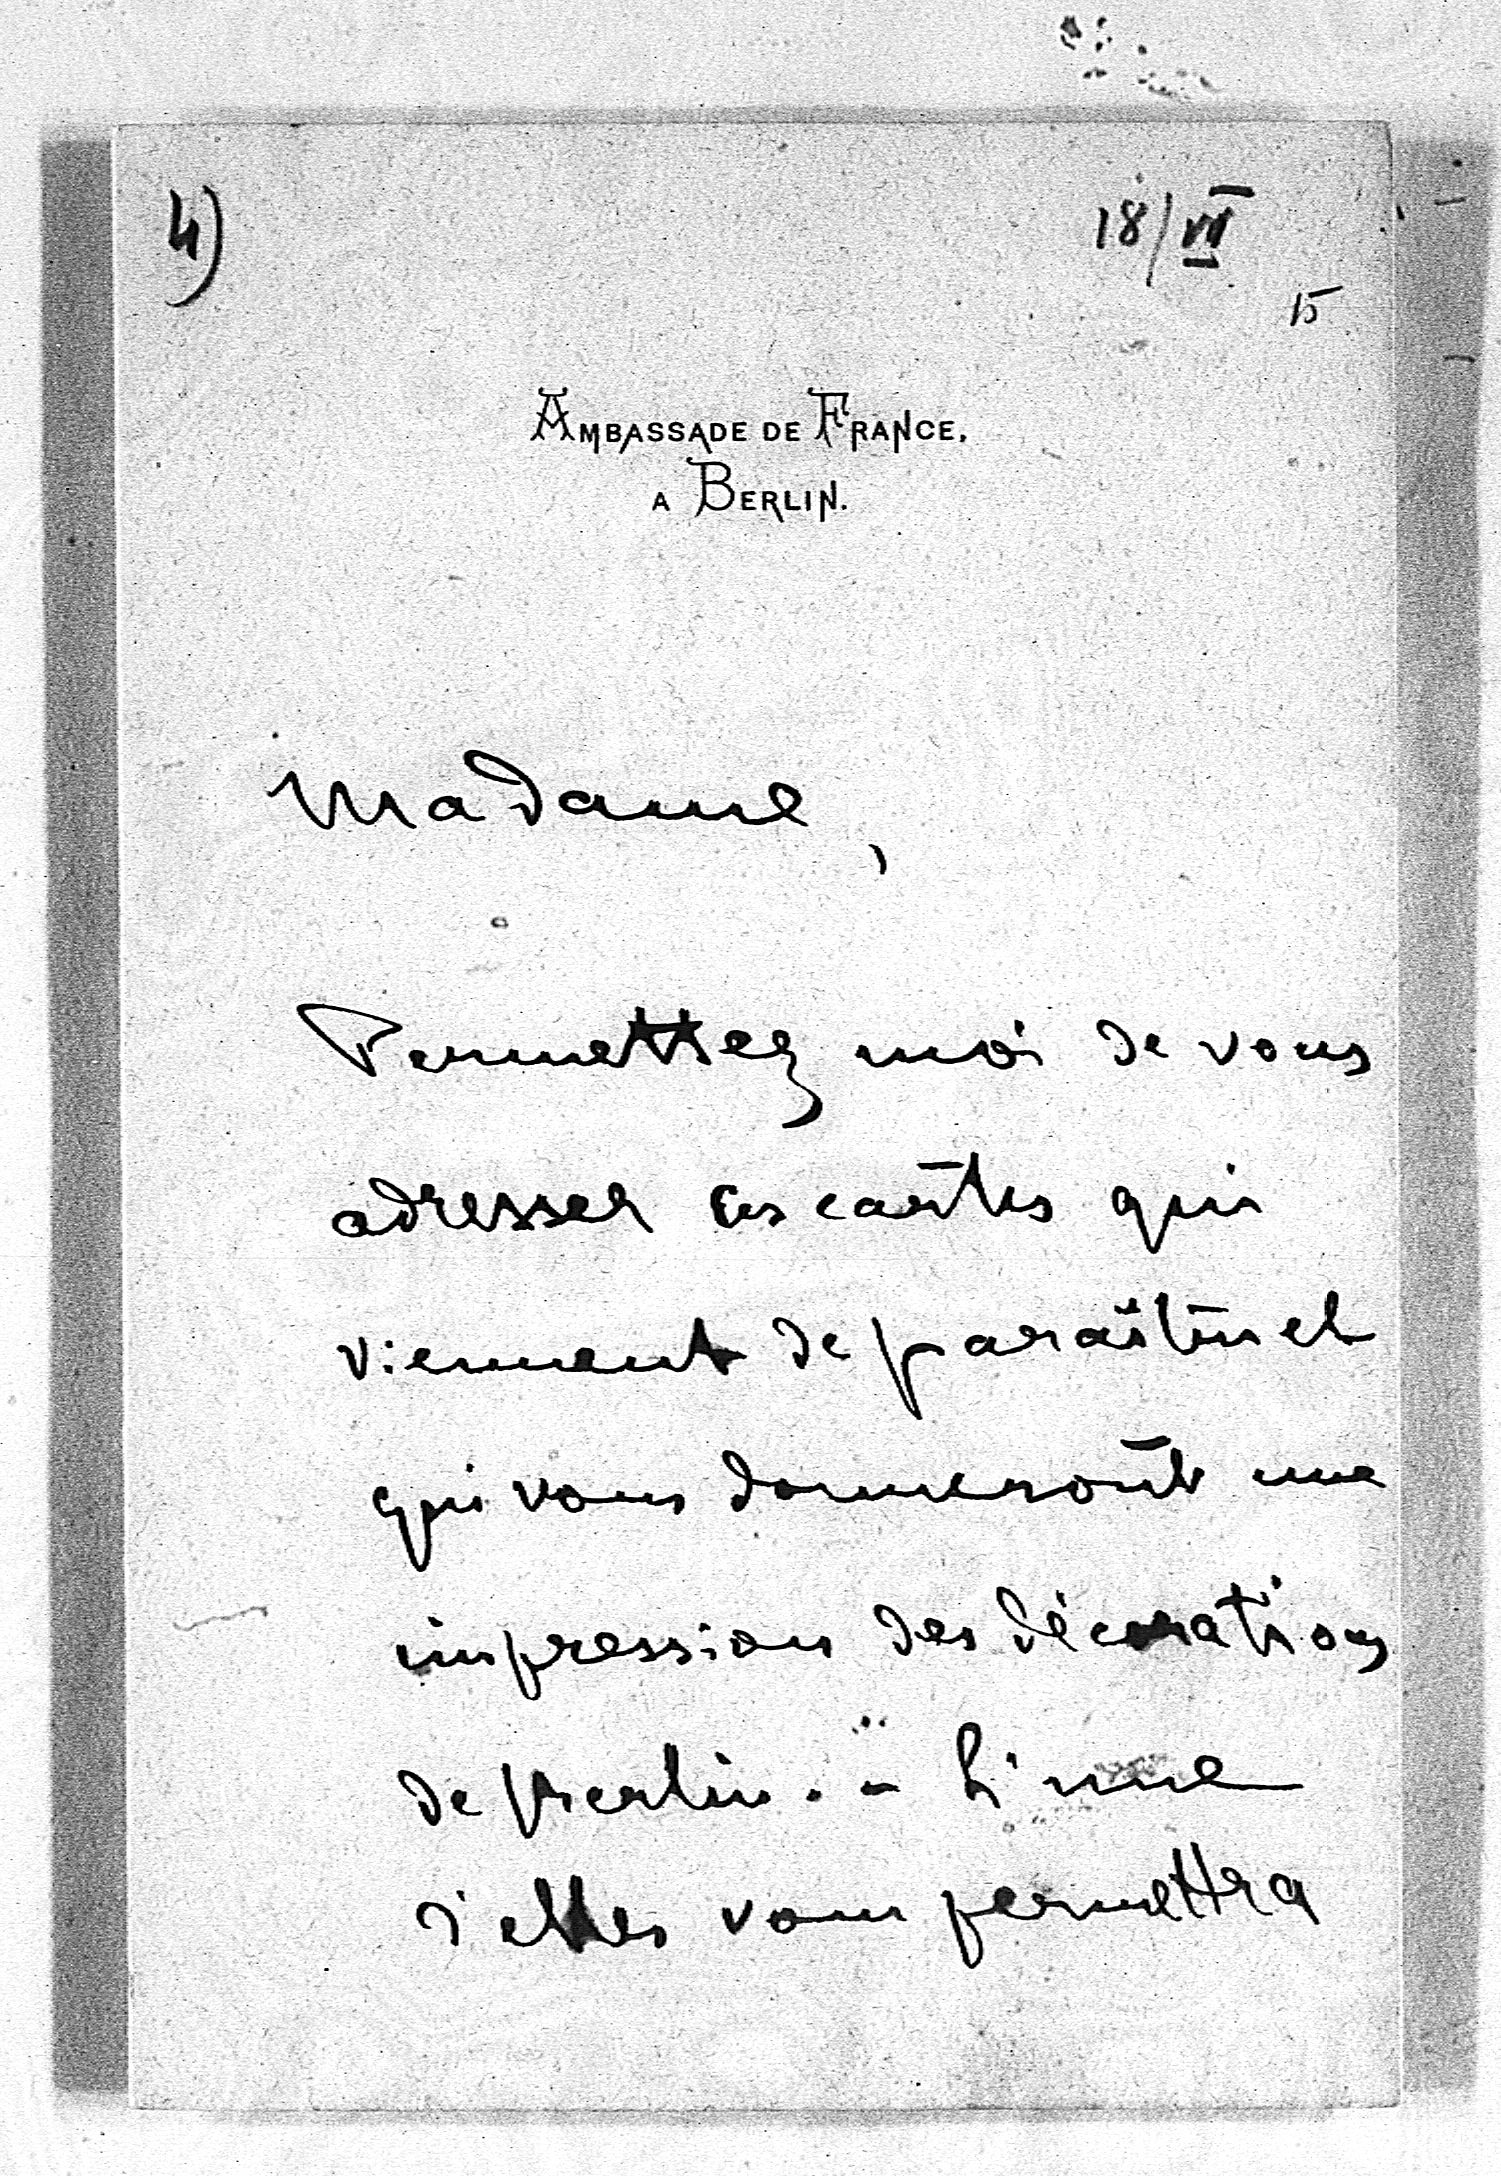 4)
18/VII
15
AMBASSADE DE FRANCE,
A BERLIN.
Madame,
Permettez moi de vous
adresser ces cartes qui
viennent de paraître et
qui vous donneront une
impression des décorations
de Berlin. - L'une
d'elles vous permettra